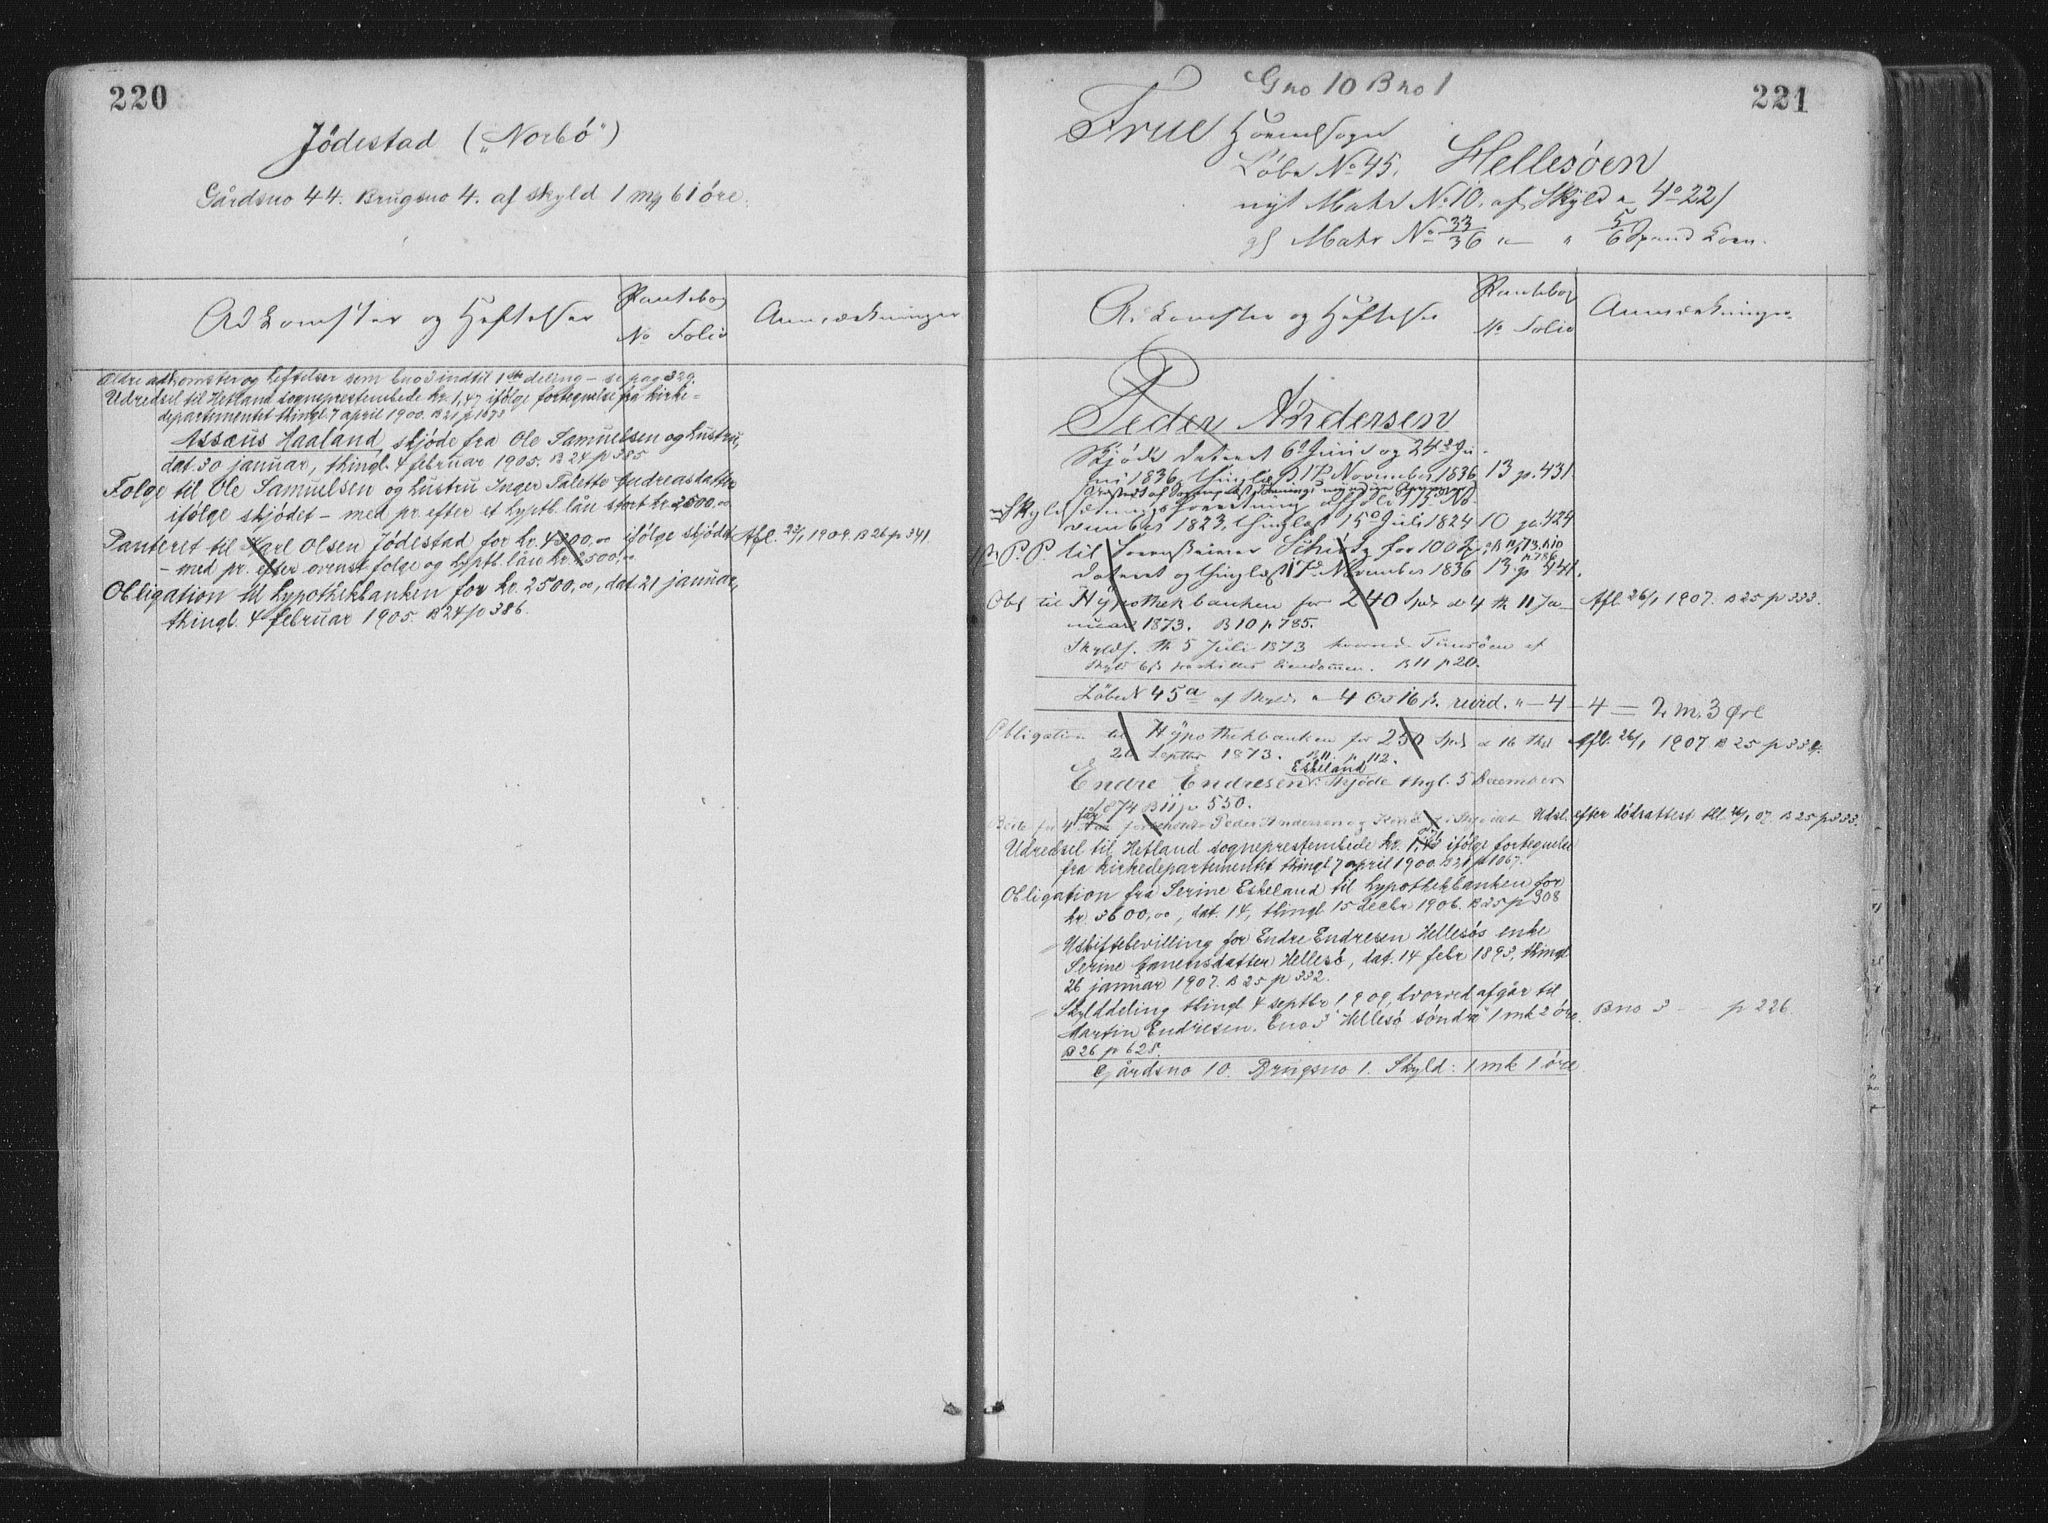 220
Jödestad („Norbö“)
Gårdsno 44. Brugsno 4. af skyld 1 mk 61 öre.
Adkomster og Heftelser
Pantebog
No Folio
Anmærkninger
Ældre adkomster og heftelser som bno 3 indtil 1ste deling – se pag 329.
Udredsel til Hetland sogneprestembede kr. 1,47 ifölge fortegnelse fra kirke=
departementet thingl. 7 april 1900. B 21 p 1073
Assæus Haaland, skjöde fra Ole Samuelsen og hustru,
dat. 30 januar, thingl. 4 februar 1905. B 24 p 385
Folge til Ole Samuelsen og hustru Inger Talette Andreasdatter
ifölge skjödet – med pr. efter et hypth. lån stort kr. 2500,00
Panteret til Karl Olsen Jödestad for kr. 4300,00 ifölge skjödet Afl. 23/1 1909. B 26 p 341.
– med pr. efter ovenst. folge og hypth. lån kr. 2500,00
Obligation til hypothekbanken for kr. 2500,00, dat. 21 januar,
thingl. 4 februar 1905. B 24 p 386.
221
Gno 10 Bno 1
Frue Sogn
Löbe No 45. Hellesöen
nyt Matr No 10. af Skyld „ 4 o 22 /
gl Matr No 33/36 „ „ 5/6 Spand Korn.
Adkomster og Heftelser
Pantebog
No Folio
Anmærkninger
Peder Andersen
Skjöde dateret 6te Juni og 24de Ju-
ni 1836, thinglæst 17 November 1836 13 p. 431.
Skyldsætningsforretning afholdt 15 No-
vember 1823, thinglæst 15de Juli 1824 10 pa. 424
P. P. til Schiötz for 100
dateret og thinglæst 17de November 1836 13 p 441.
Obl til Hypothekbanken for 240 Spd. d. 4 th 11 Ja- Afl. 26/1 1907. B 25 p 333.
nuar 1873. B 10 p 785.
Skyldf. th 5 Juli 1873 hvorved Tunsöen af
Skyld 6 ß fraskilles Eiendommen. B 11 p 20.
Löbe N 45a af Skyld „ 4 Ort 16 ß. reivd. „ – 4 – 4 = 2 m. 3 Øre
Obligation til Hypothekbanken for 250 Spd d 16 thgl Afl. 26/1 1907. B 25 p 333.
20 Septbr 1873. B 11 p 112.
Eskeland
Endre Endresen: Skjöde thgl. 5 December
1874 B 11 p 550.
Peder Andersen og Kone i Skjödet Udsl. efter dödsattest tll. 26/1 07. B 25 p 333.
Udredsel til Hetland sogneprestembede kr. ifölge fortegnelse
fra kirkedepartementet thingl 7 april 1900. B 21 p 1067.
Obligation fra Serine Eskeland til hypothekbanken for
kr. 3600,00, dat. 14, thingl 15 decbr 1906. B 25 p 308
Uskiftebevilling for Endre Endresen Hellesös enke
Serine Hellesö, dat. 14 febr 1893, thingl
26 januar 1907. B 25 p 332.
Skylddeling thingl 4 septbr 1909, hvorved afgår til
Martin Endresen. Bno 3 „Hellesö söndre“ 1 mk 2 öre. Bno 3 – p 226.
B 26 p 628.
Gårdsno 10. Brugsno 1. Skyld: 1 mk 1 öre.